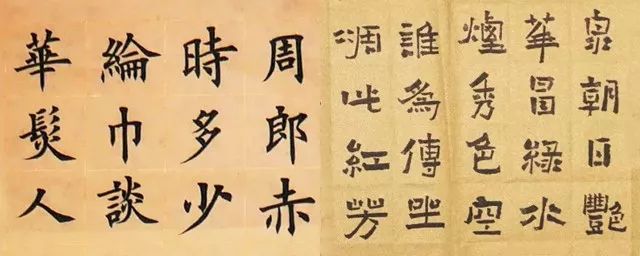 周郎赤
時多少
綸巾談
華髮人
泉朝日艷
華冒綠水
煙秀色空
誰為傳坐
凋此紅芳